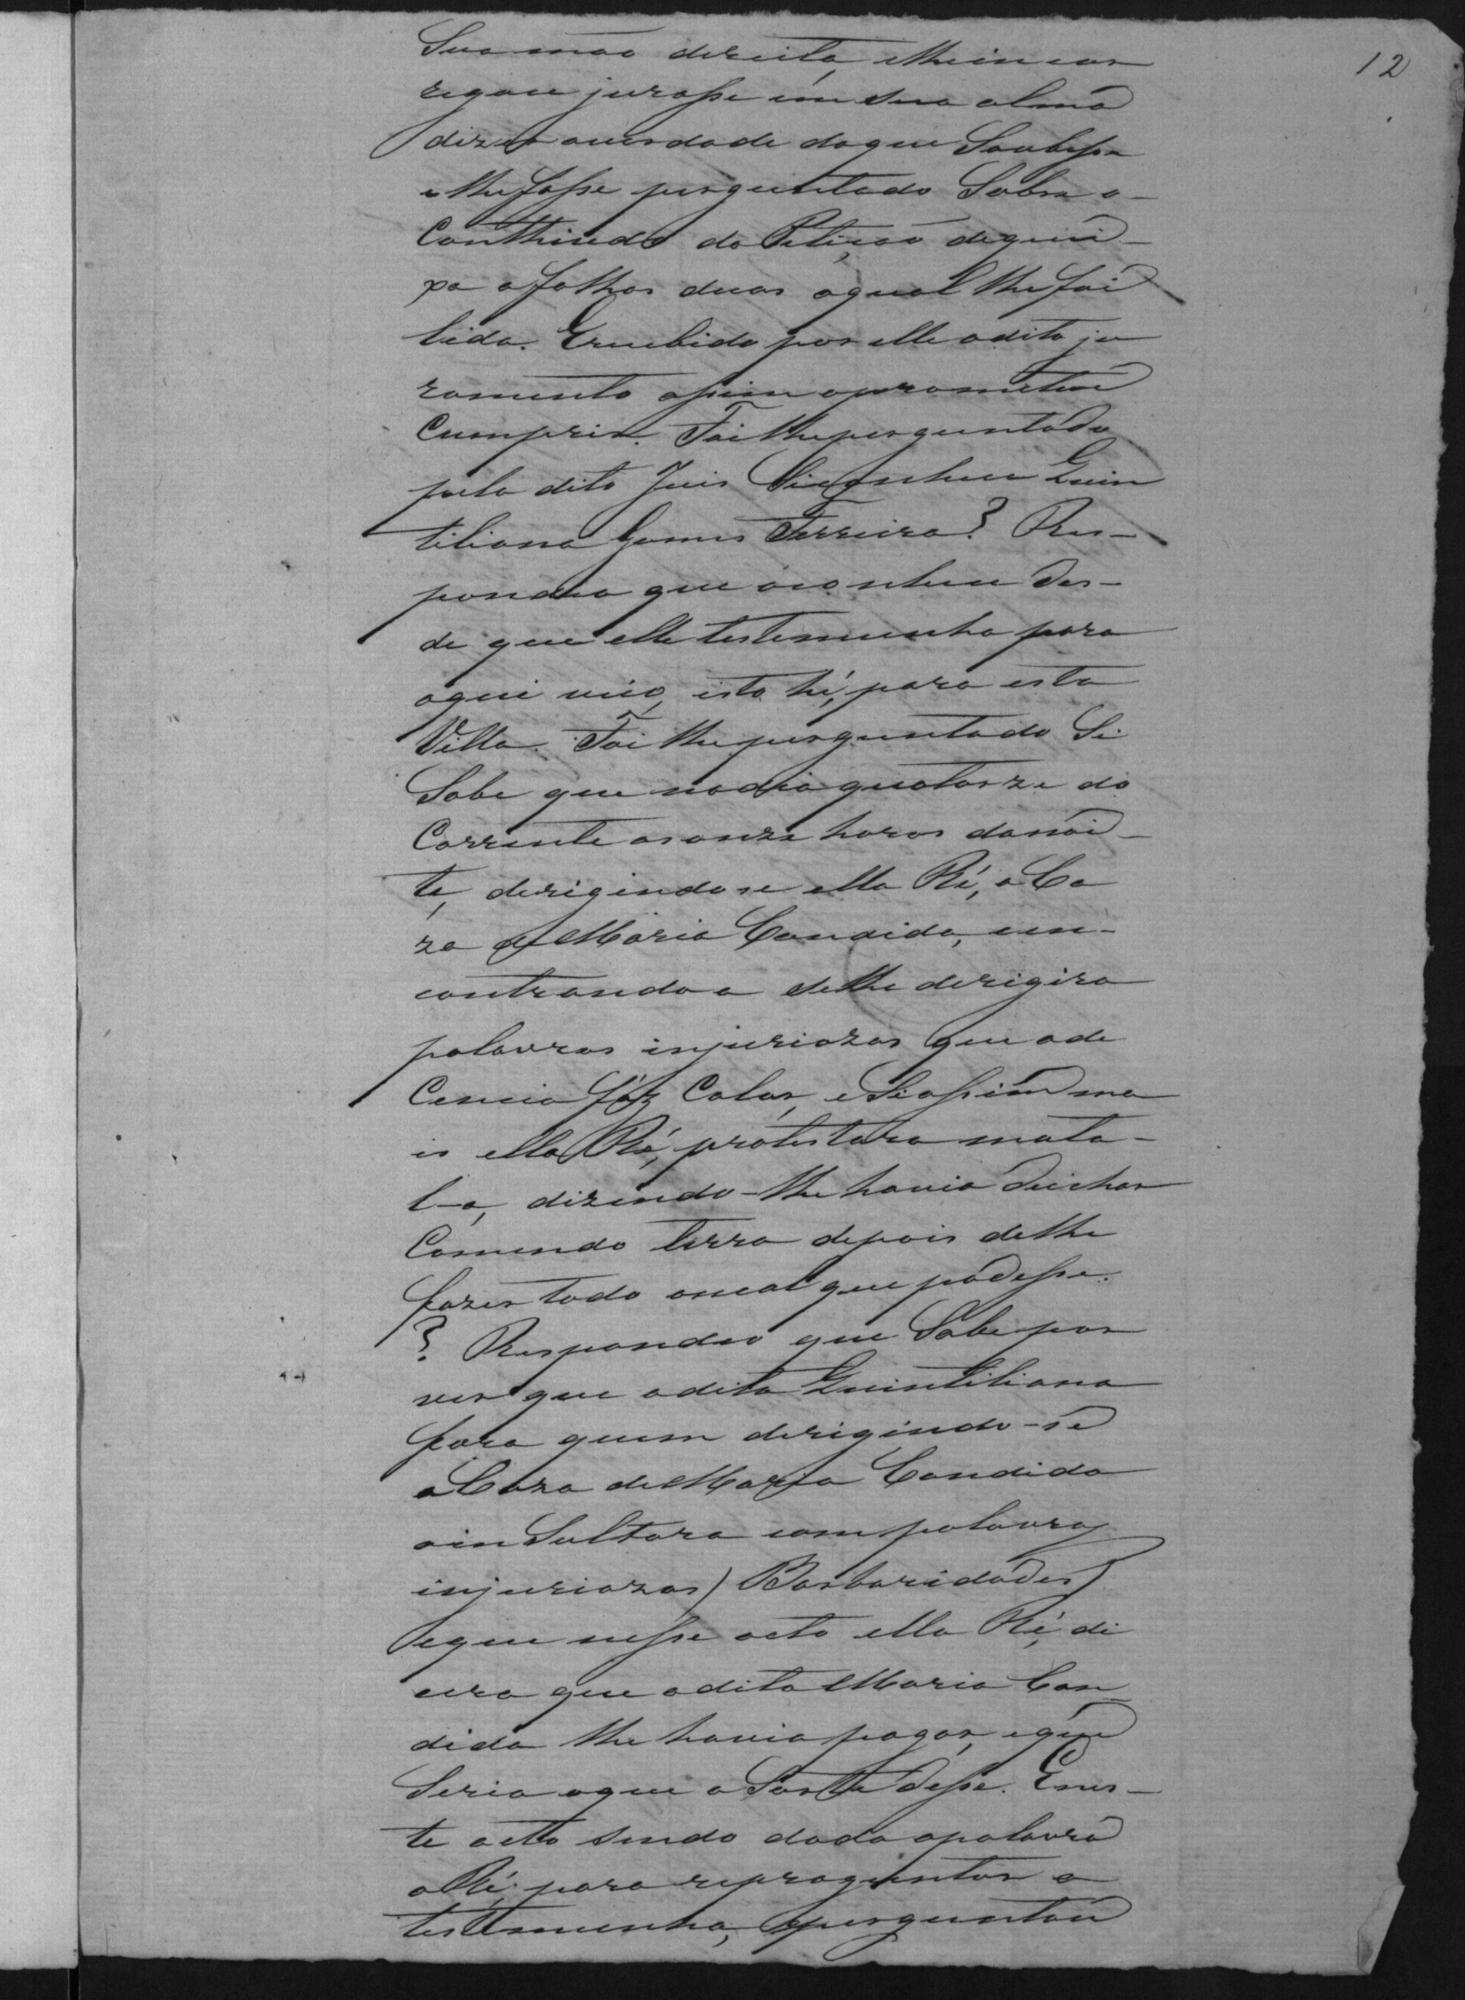 12
Sua mão direita, elhe incar
regou jurasse em sua alma
dizer averdade doque Soubesse
elhe fosse perguntado Sobre o
Conthiudo da Petição dequei-
xa afolhas duas aqual lhe foi
lida. Erecebido por elle odito ju
ramento assim oprometeu
Cumprir. Foi lhe perguntado
pelo dito Juis Siconhece Quin
tiliana Gomes Ferreira? Res-
pondeo que aconhece des-
de que elle testemunha para
aqui veio, isto hé, para esta
Villa. Foi lhe perguntado Si
Sabe que nodia quatorze do
Corrente as onze horas danoi-
te, derigindose ella Ré, a Ca
za de Maria Candida, en-
contrandoa selhe derigira
palavras injuriozas que ade
Cencia fáz Calar, e Siassim ma
is ella Ré, protestara mata-
l-a, dizendo-lhe havia deichar
Comendo terra depois delhe
fazer todo omal que podesse.
? Respondeo que Sabe por
ver que adita Quintiliana
fora quem derigindo-se
a Caza de Maria Candida
ainSultara com palavras
injuriozas) Barbaridades)
eque nesse acto ella Ré, di
cera que adita Maria Can
dida lhe havia pagar, eque
Seria oque a Sorte desse. Enes-
te acto sendo dada apalavra
a Ré, para repreguntar a
testemunha, perguntou